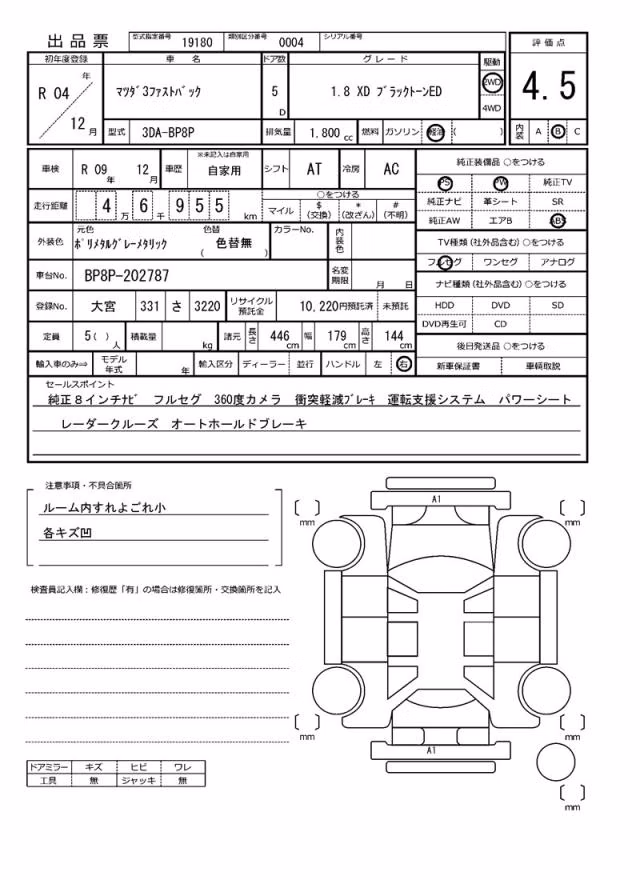 出品票 型式指定番号 19180 類別区分番号 0004 シリアル番号
初年度登録 車 名 ドア数 グレード 駆動 評価点
R 04 年 12 月 マツダ3ファストバック 5 D 1.8 XD ブラックトーンED 2WD 4WD 4.5
型式 3DA-BP8P 排気量 1.800 cc 燃料 ガソリン 軽油 ( ) 内装 A B C
車検 R 09 年 12 月 車歴 ※未記入は自家用 自家用 シフト AT 冷房 AC
走行距離 4 万 6 千 9 5 5 km ○をつける
マイル $ (交換) * (改ざん) # (不明)
外装色 元色 ポリメタルグレーメタリック 色替 ( 色替無 ) カラーNo. 内装色
車台No. BP8P-202787 名変期限 月 日
登録No. 大宮 331 さ 3220 リサイクル預託金 10,220円預託済 未預託
定員 5( ) 人 積載量 kg 諸元 長さ 446 cm 幅 179 cm 高さ 144 cm
輸入車のみ⇒ モデル年式 年 輸入区分 ディーラー 並行 ハンドル 左 右
純正装備品 ○をつける
PS PW 純正TV
純正ナビ 革シート SR
純正AW エアB ABS
TV種類(社外品含む) ○をつける
フルセグ ワンセグ アナログ
ナビ種類(社外品含む) ○をつける
HDD DVD SD
DVD再生可 CD
後日発送品 ○をつける
新車保証書 車輌取説
セールスポイント
純正8インチナビ フルセグ 360度カメラ 衝突軽減ブレーキ 運転支援システム パワーシート
レーダークルーズ オートホールドブレーキ
注意事項・不具合箇所
ルーム内すれよごれ小
各キズ凹
検査員記入欄：修復歴「有」の場合は修復箇所・交換箇所を記入
A1
mm
mm
mm
mm
A1
mm
ドアミラー キズ ヒビ ワレ
工具 無 ジャッキ 無